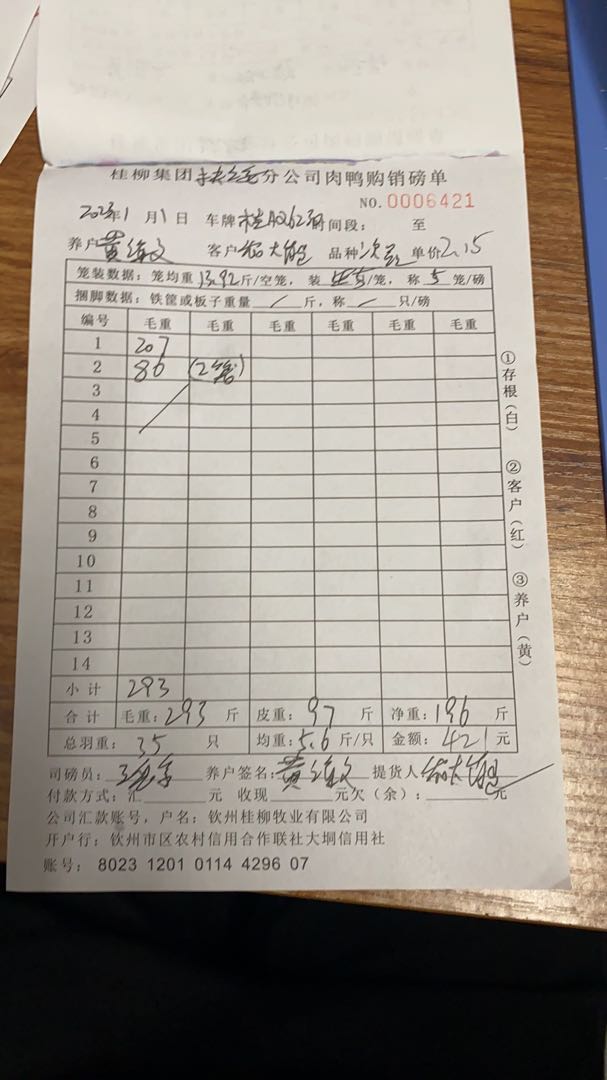 桂柳集团 分公司肉鸭购销磅单
NO.0006421
2023年1月1日 车牌 时间段: 至
养户 黄 客户 大 品种 次 单价 2.15
笼装数据:笼均重 13.92 斤/空笼,装 /笼,称 5 笼/磅
捆脚数据:铁筐或板子重量 / 斤,称 / 只/磅
编号 毛重 毛重 毛重 毛重 毛重 毛重
1 207
2 86 (2笼)
3
4
5
6
7
8
9
10
11
12
13
14
小计 293
合计 毛重:293 斤 皮重:97 斤 净重:196 斤
总羽重:35 只 均重:5.6 斤/只 金额:421 元
司磅员: 养户签名:黄 提货人 大
付款方式:汇 元 收现 元欠(余): 元
公司汇款账号,户名:钦州桂柳牧业有限公司
开户行:钦州市区农村信用合作联社大垌信用社
账号: 8023 1201 0114 4296 07
①存根(白)
②客户(红)
③养户(黄)